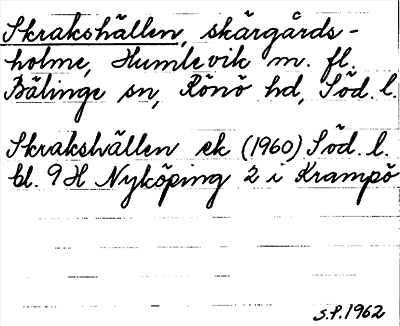 Skrakshällen, skärgårds-
holme, Humlevik m. fl.
Bälinge sn, Rönö hd, Söd. l.
Skrakshällen ek (1960) Söd. l.
bl. 9H Nyköping 2 i Krampö
S.P. 1962